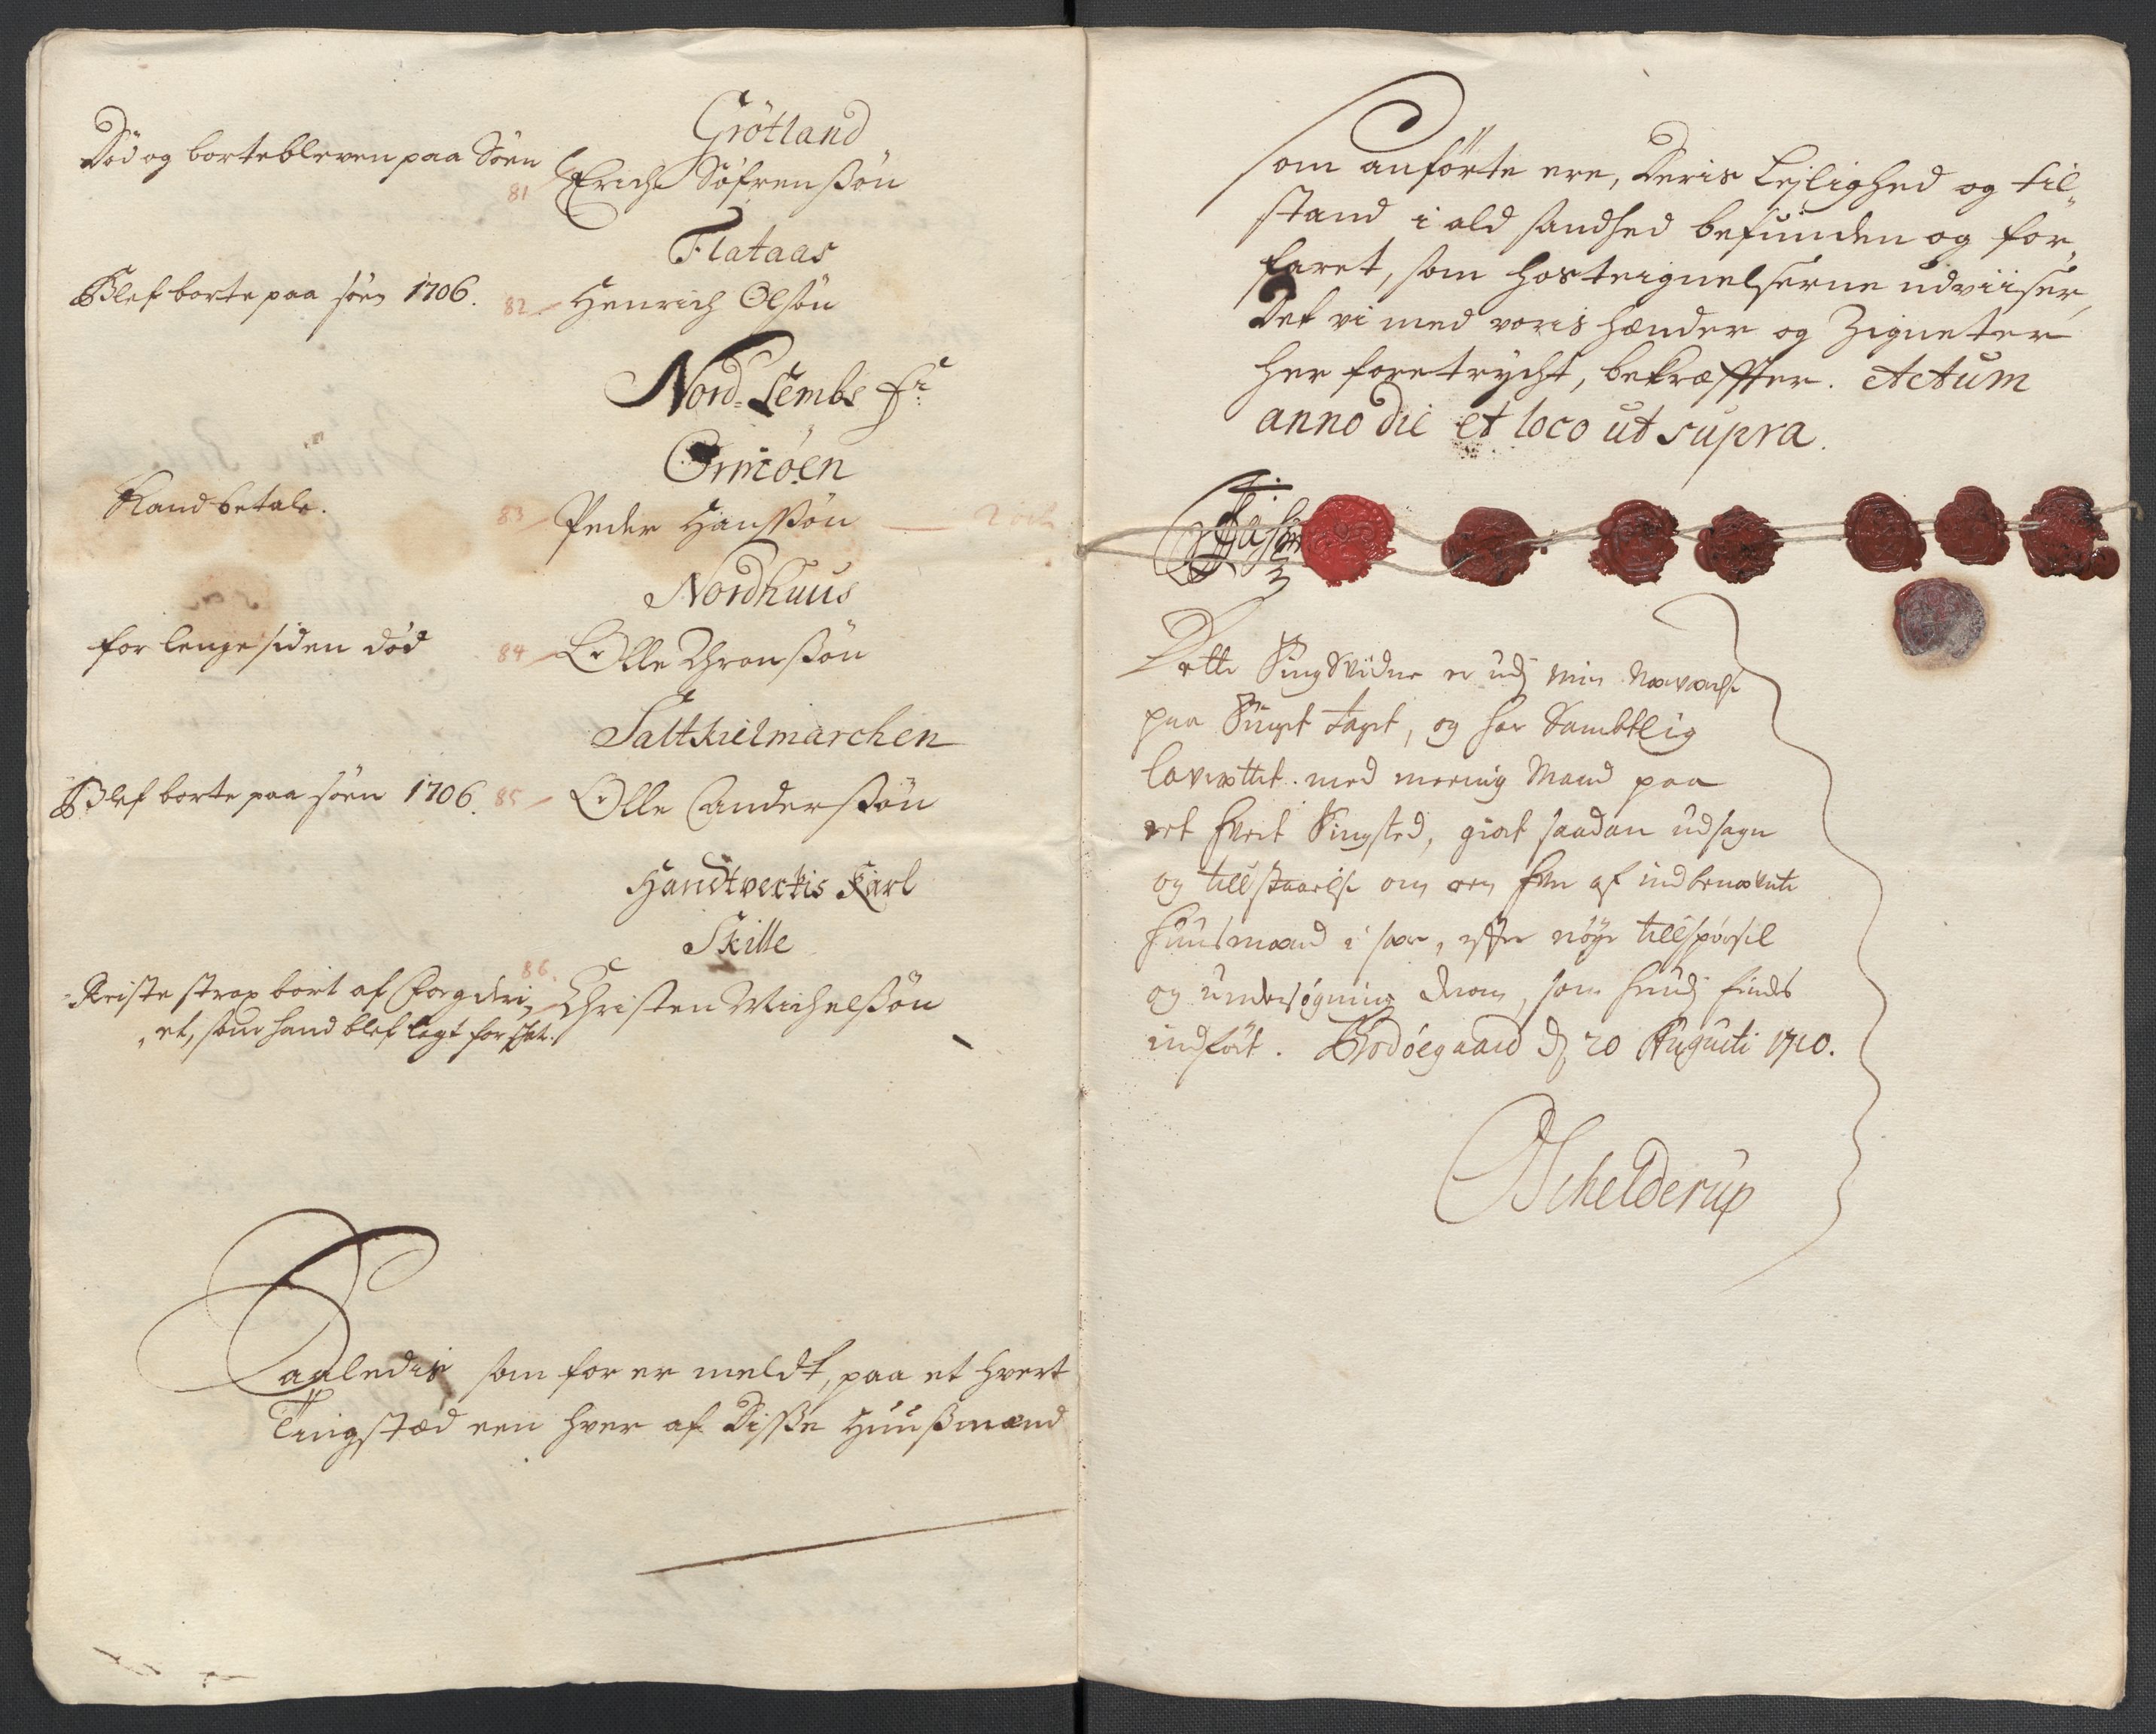 Grötland
Död og bortebleven paa Söen
81 Erich Söfrensßön
Flataas
Blef borte paa söen 1706.
82 Henrich Olsön
Nord-Lembs fr:
Ormöen
Kand betale.
83 Peder Hansßön
Nordhuus
for lenge siden död
84 Olle Thronsßön
Saltkielmarchen
Blef borte paa söen 1706.
85 Olle Andersßön
Handtverkis Karl
Skille
Reiste strax bort af Fogderi„
„et, som hand blef lagt for Skat.
86. Christen Michelsßön
Saaledis som for er meldt, paa et hvert
Tingstæd een hver af Disse Huusßmænd
som anförte ere, Deris Lejlighed og til„
stand i ald sandhed befunden og for„
faret, som hosteignelserne udviiser,
Det vi med voris hænder og Zigneter
her foretrycht, bekræffter. Actum
anno die et loco ut supra.
Dette Tingsvidne er udj min nærværelse
paa Tinget taget, og har Sambtlig
lavrettet med meenig Mand paa
et hvert Tingsted, giort saadan udsagn
og tillstaaelse om een hver af indbenævnte
huusmænd i sær, efter nöye tillspörsel
og undersögning derom, som hudj findes
indfört. Bodöegaard d. 20 Augusti 1710.
Schelderup